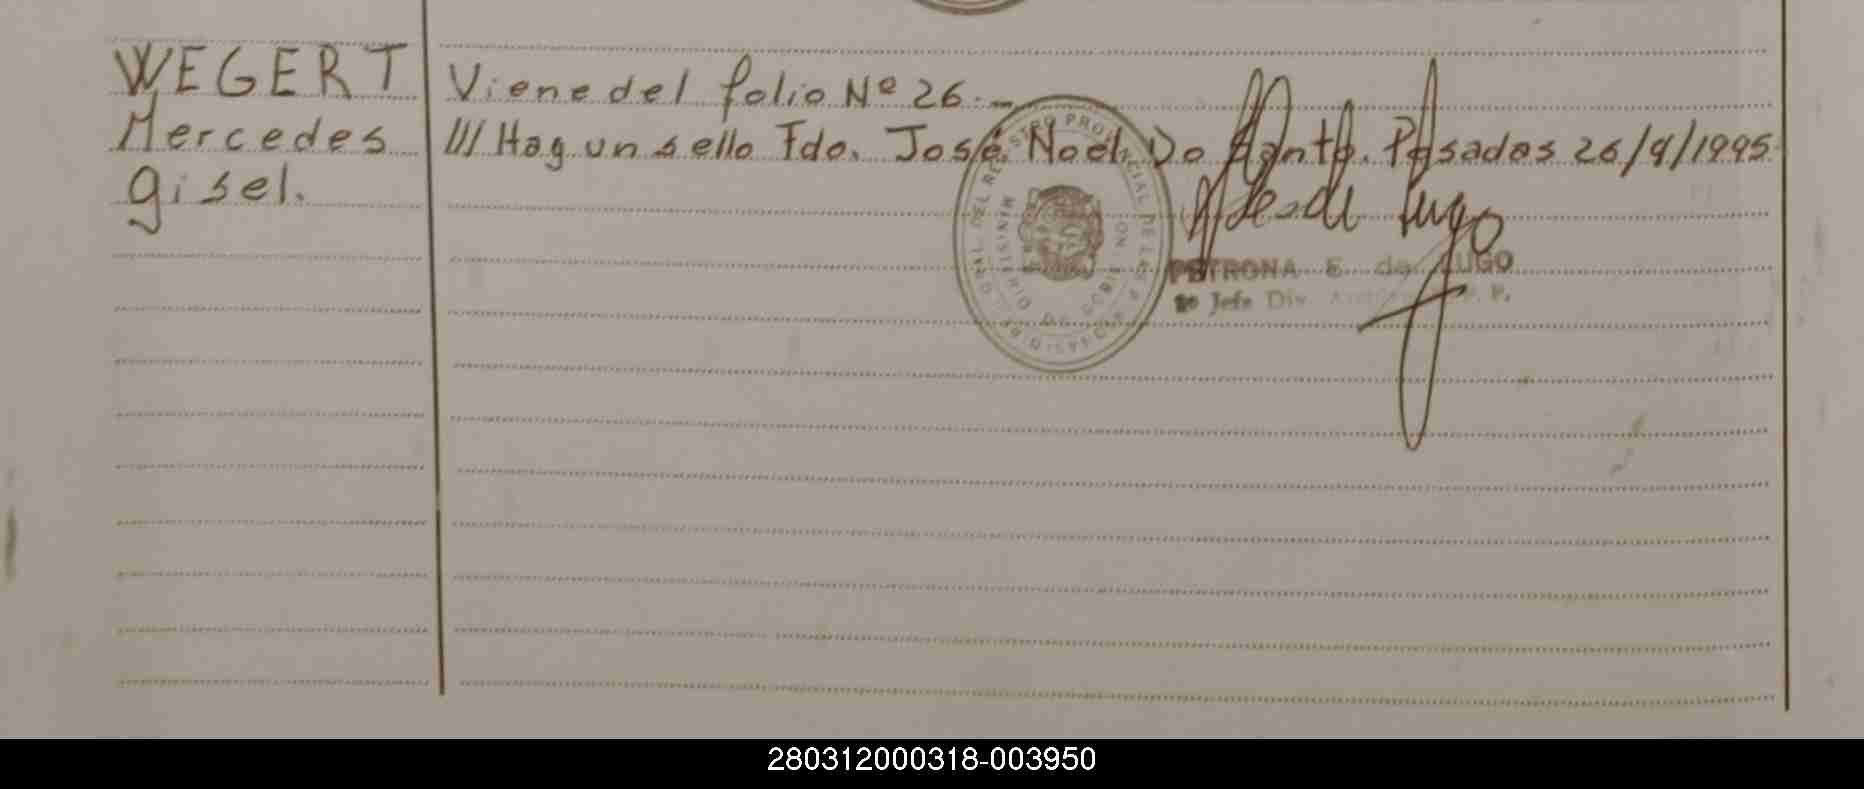 WEGERT
Mercedes
gisel.
Viene del folio Nº 26.-
/// Hag un sello Fdo. José Noel Do Santo. Posadas 26/9/1995.
REGISTRO PROVINCIAL DE LAS P
MINISTERIO DE GOBERNACION
PETRONA E. de LUGO
Jefe Div.
280312000318-003950